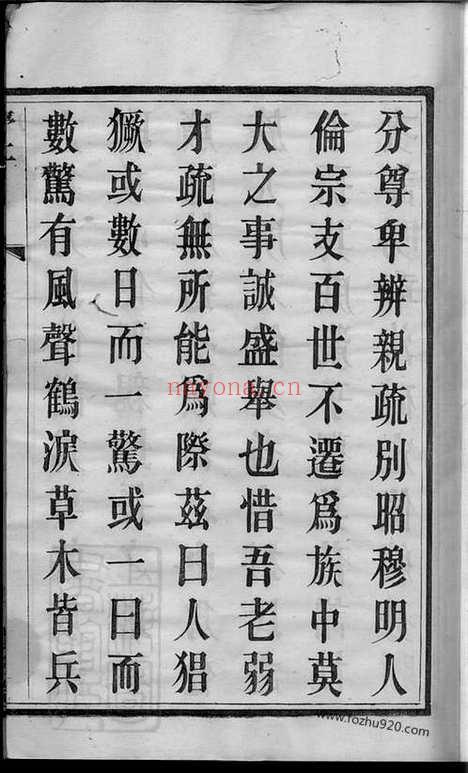 分尊卑辨親疏別昭穆明人
倫宗支百世不遷爲族中莫
大之事誠盛舉也惜吾老弱
才疏無所能爲際茲日人猖
獗或數日而一驚或一日而
數驚有風聲鶴淚草木皆兵
nayona.cn
www.fozhu920.com